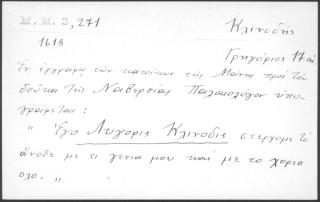 M. M. 3, 271
Κλινοδής
1618
Γρηγόριος 17 αι
Εν εγγράφω των κατοίκων της Μάνης προς τον
δούκα της Ναϊβερσίας Παλαιολόγον υπο-
γράφεται:
" Εγο Λυγορις Κλινοδις στεργομε το
άνοθε με τι γενια μου και με το χοριο
ολο. „